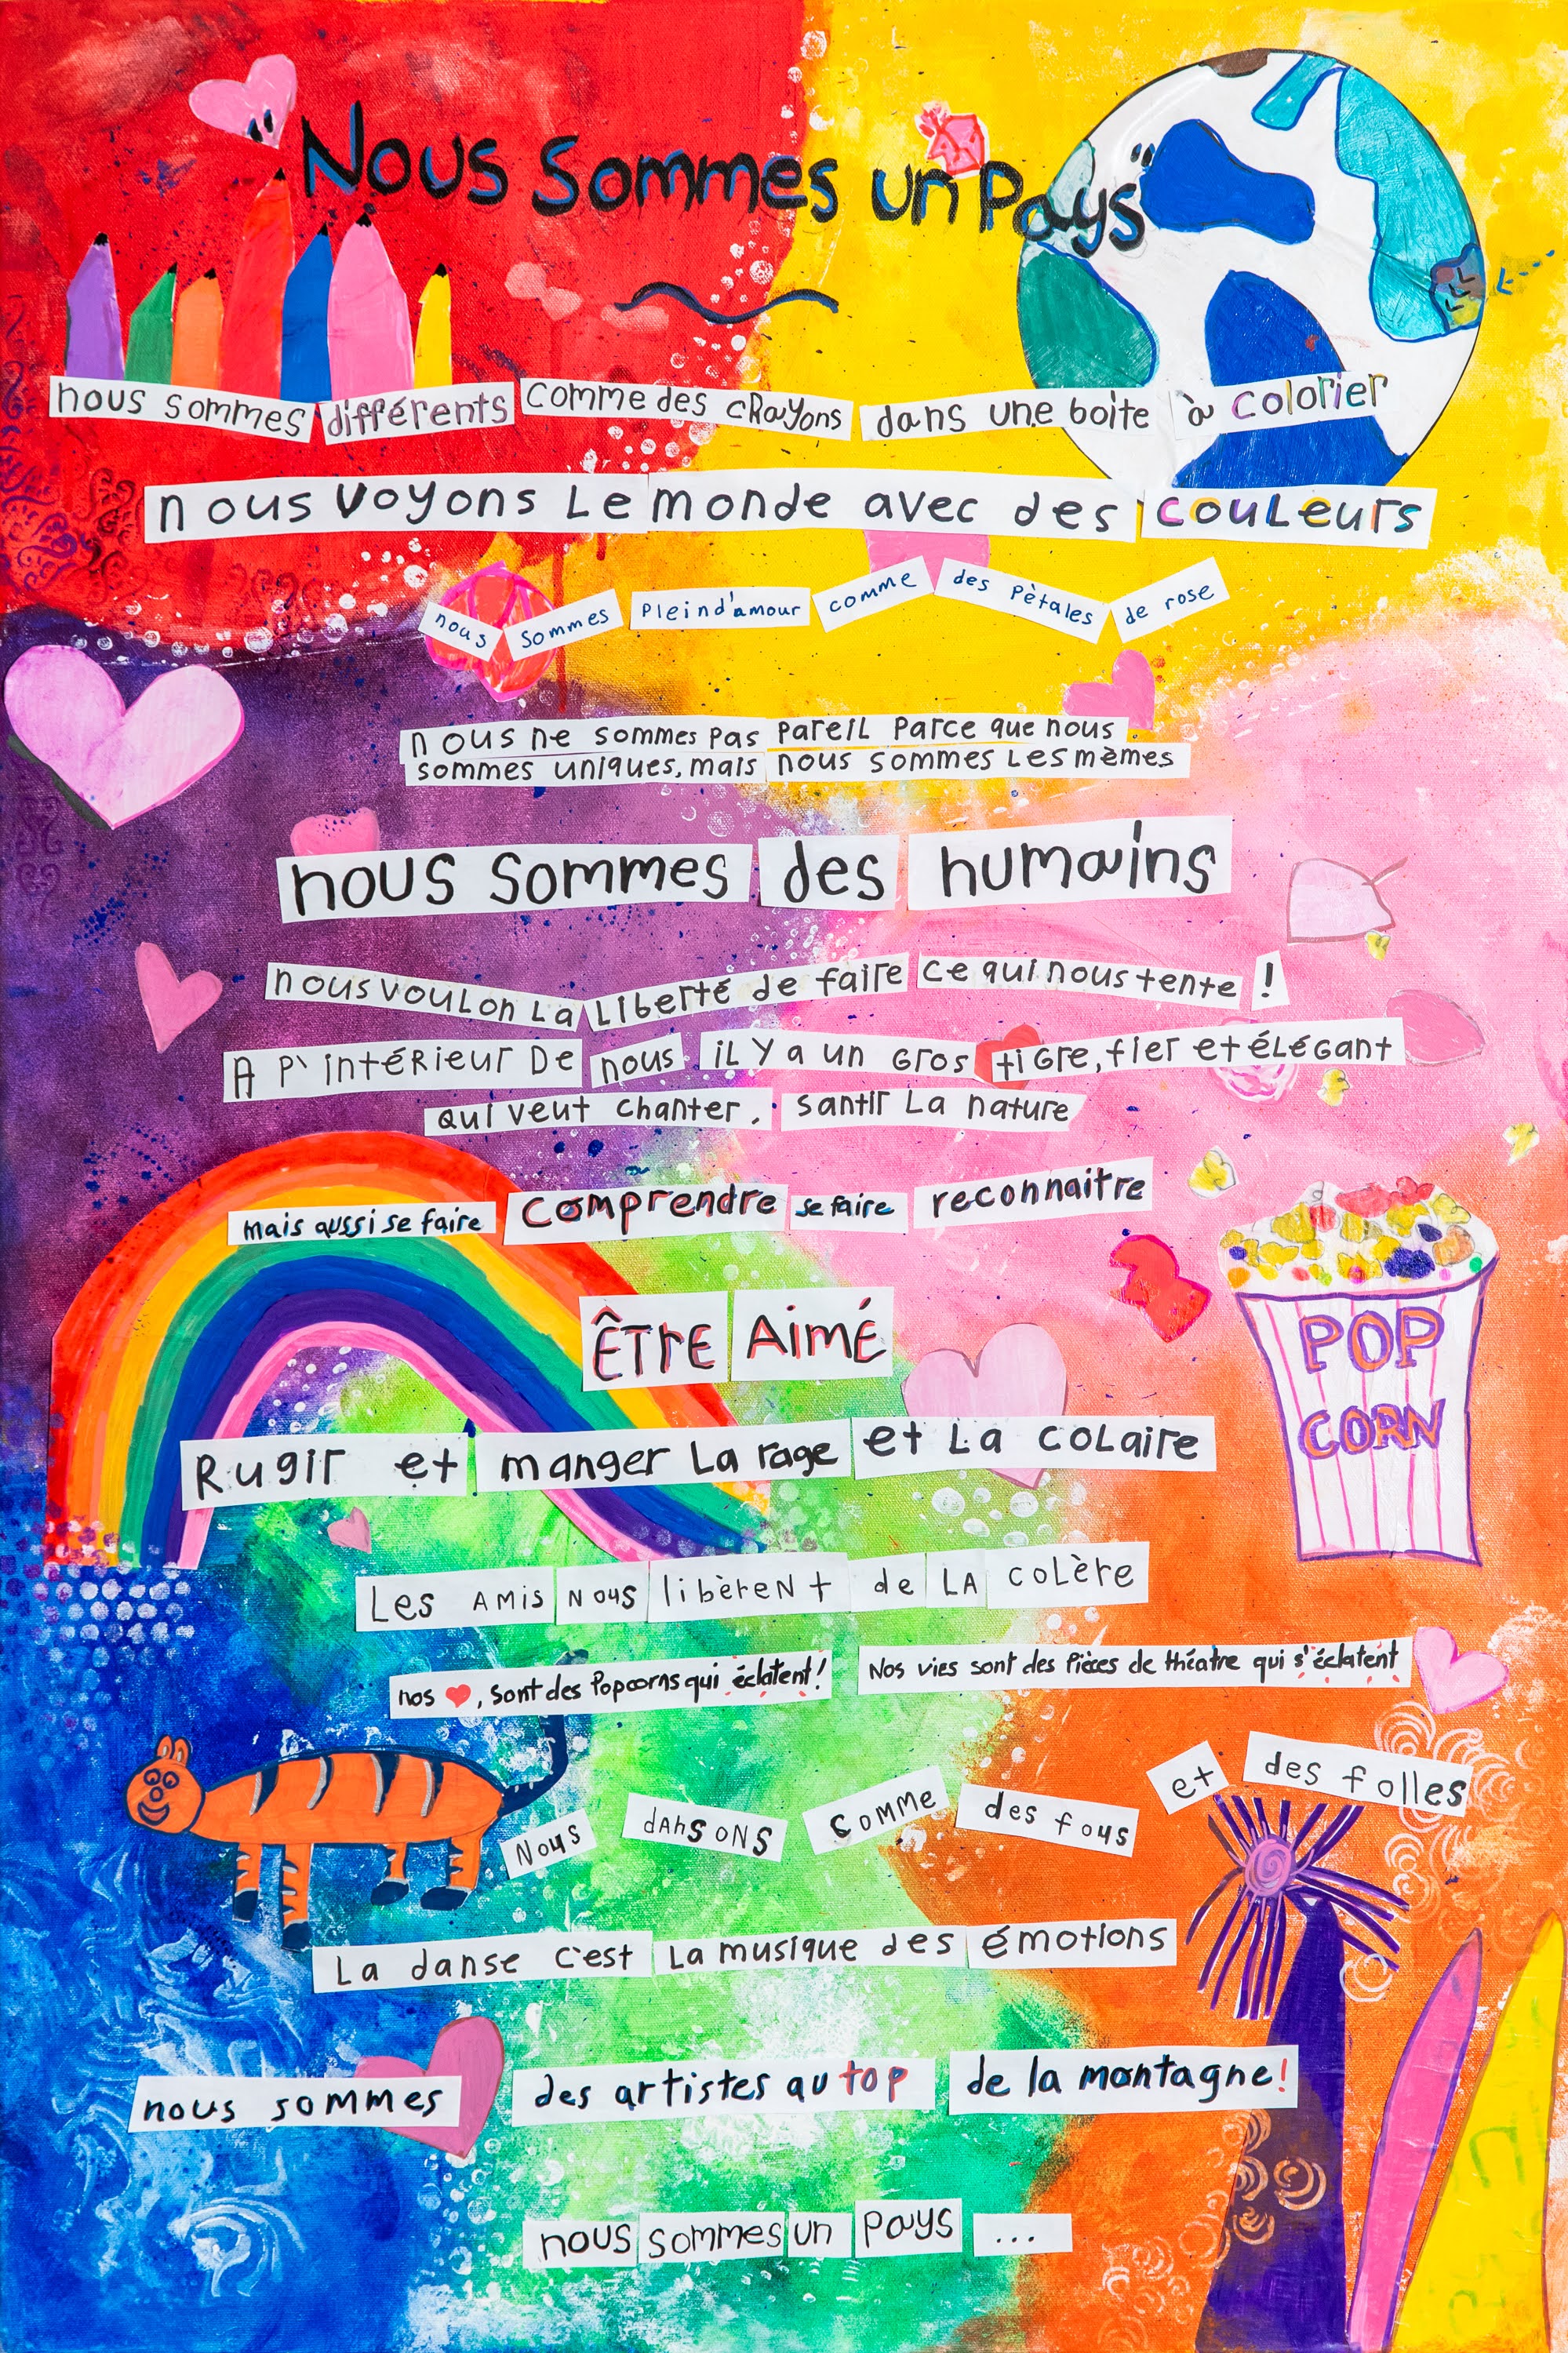 Nous sommes un Pays"
nous sommes différents comme des crayons dans une boite à colorier
nous voyons Le monde avec des couLeurs
nous sommes Plein d'amour comme des pètales de rose
nous ne sommes pas pareil parce que nous
sommes uniques, mais nous sommes Les mèmes
nous sommes des humains
nous vouLon La Liberté de faire ce qui nous tente !
A P' intéRieur De nous iL y a un Gros tiGre, fier et éLéGant
qui veut chanter, santir La nature
mais aussi se faire comprendre se faire reconnaitre
POP
CORN
ÊTrE Aimé
Rugir et manger La rage et La coLaire
Les AMis Nous libèreNt de LA coLère
nos ❤, sont des Popcorns qui éclatent! Nos vies sont des Pièces de théatre qui s'éclatent
Nous dansons comme des fous et des folles
La danse c'est La musique des émotions
nous sommes des artistes au top de la montagne!
nous sommes un pays ...